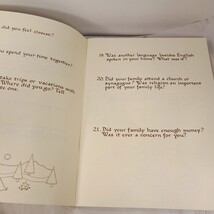 did you feel closest?
you spend your time together?
take trips or vacations with
Where did you go? Tell
te one.
19. Was another language besides English
spoken in your home? What was it?
20. Did your family attend a church or
synagogue? Was religion an important
part of your family life?
21. Did your family have enough money?
Was it ever a concern for you?